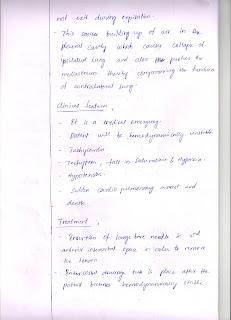 not exit during expiration.
- This causes building up of air in the
pleural cavity which causes collapse of
Ipsilateral lung and also pushes the
mediastinum thereby compromising the function
of contralateral lung.
Clinical Features,
- It is a medical emergency.
- Patient will be hemodynamically unstable
- Tachycardia
- Tachypnea, fall in saturation & Hypoxia.
- Hypotension.
- Sudden cardio pulmonary arrest and
death.
Treatment,
- Insertion of large bore needle in 2nd
anterior intercostal space in order to remove
the tension.
- Intercostal drainage tube is place after the
patient becomes hemodynamically stable